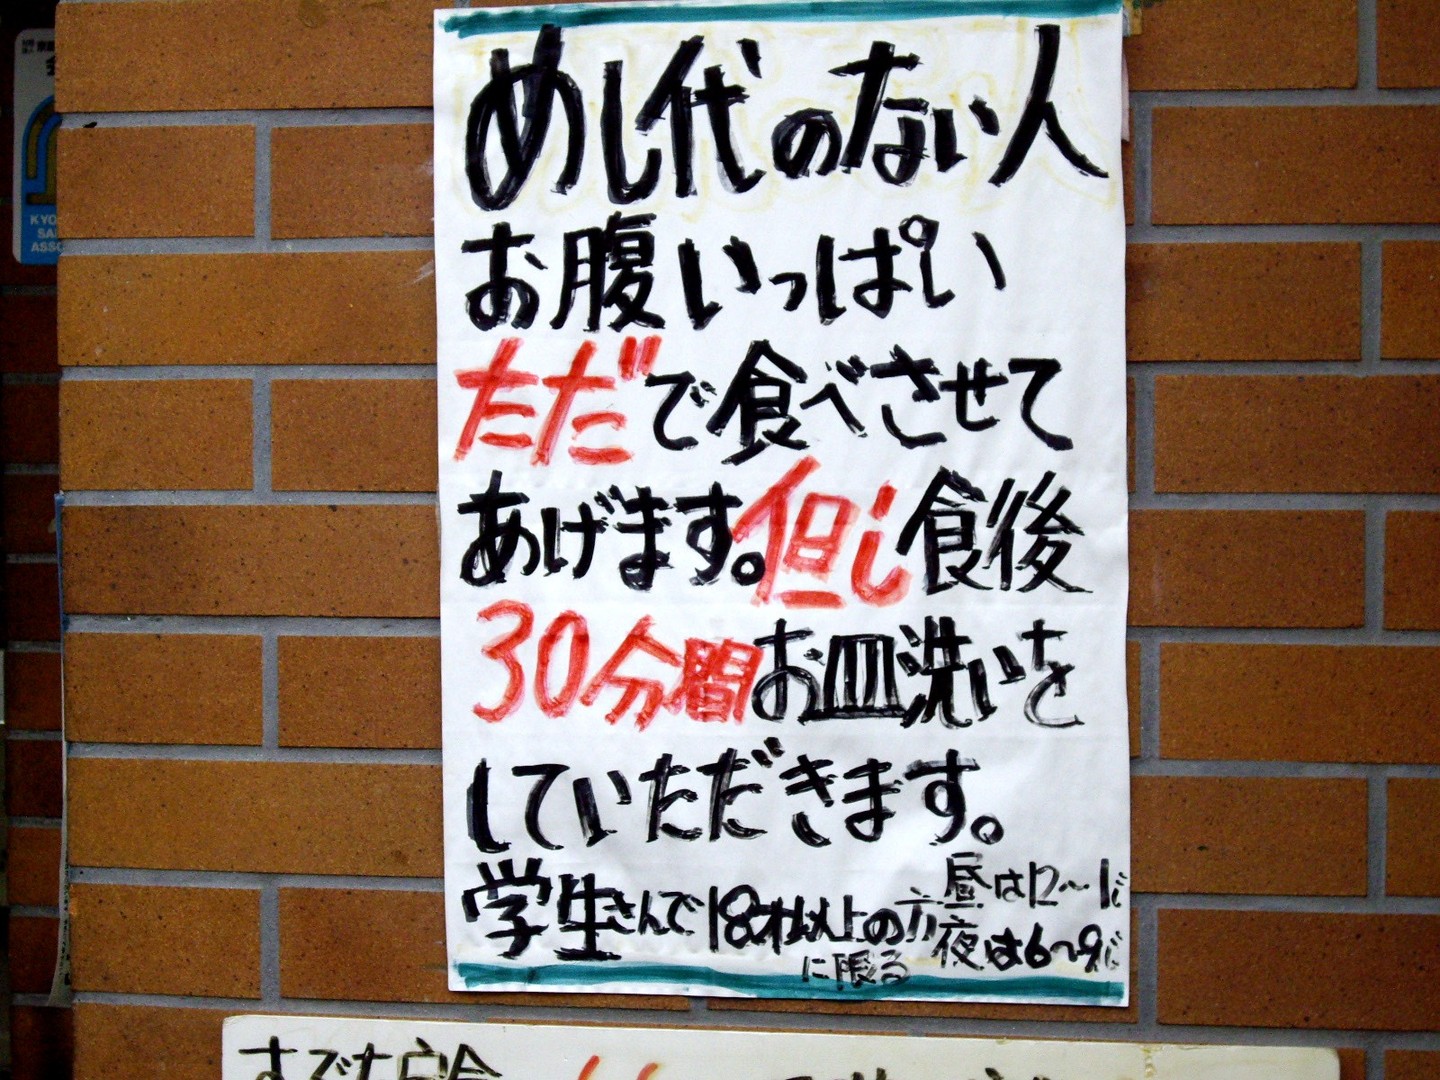 めし代のない人
お腹いっぱい
ただで食べさせて
あげます。但し食後
30分間お皿洗いを
していただきます。
学生さんで18才以上の方
に限る
昼は12〜1じ
夜は6〜9じ
KYO
SA
ASSO